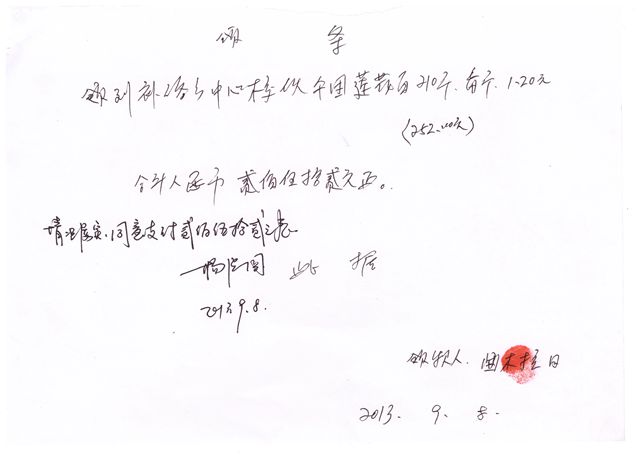 领 条
领到补语乡中心校 中国莲花白210斤.每斤.1.20元
(252.00元)
合计人民币贰佰伍拾贰元正。
情况属实.同意支付贰佰伍拾贰元
此 据
2013.9.8.
领款人. 木 日
2013. 9. 8.